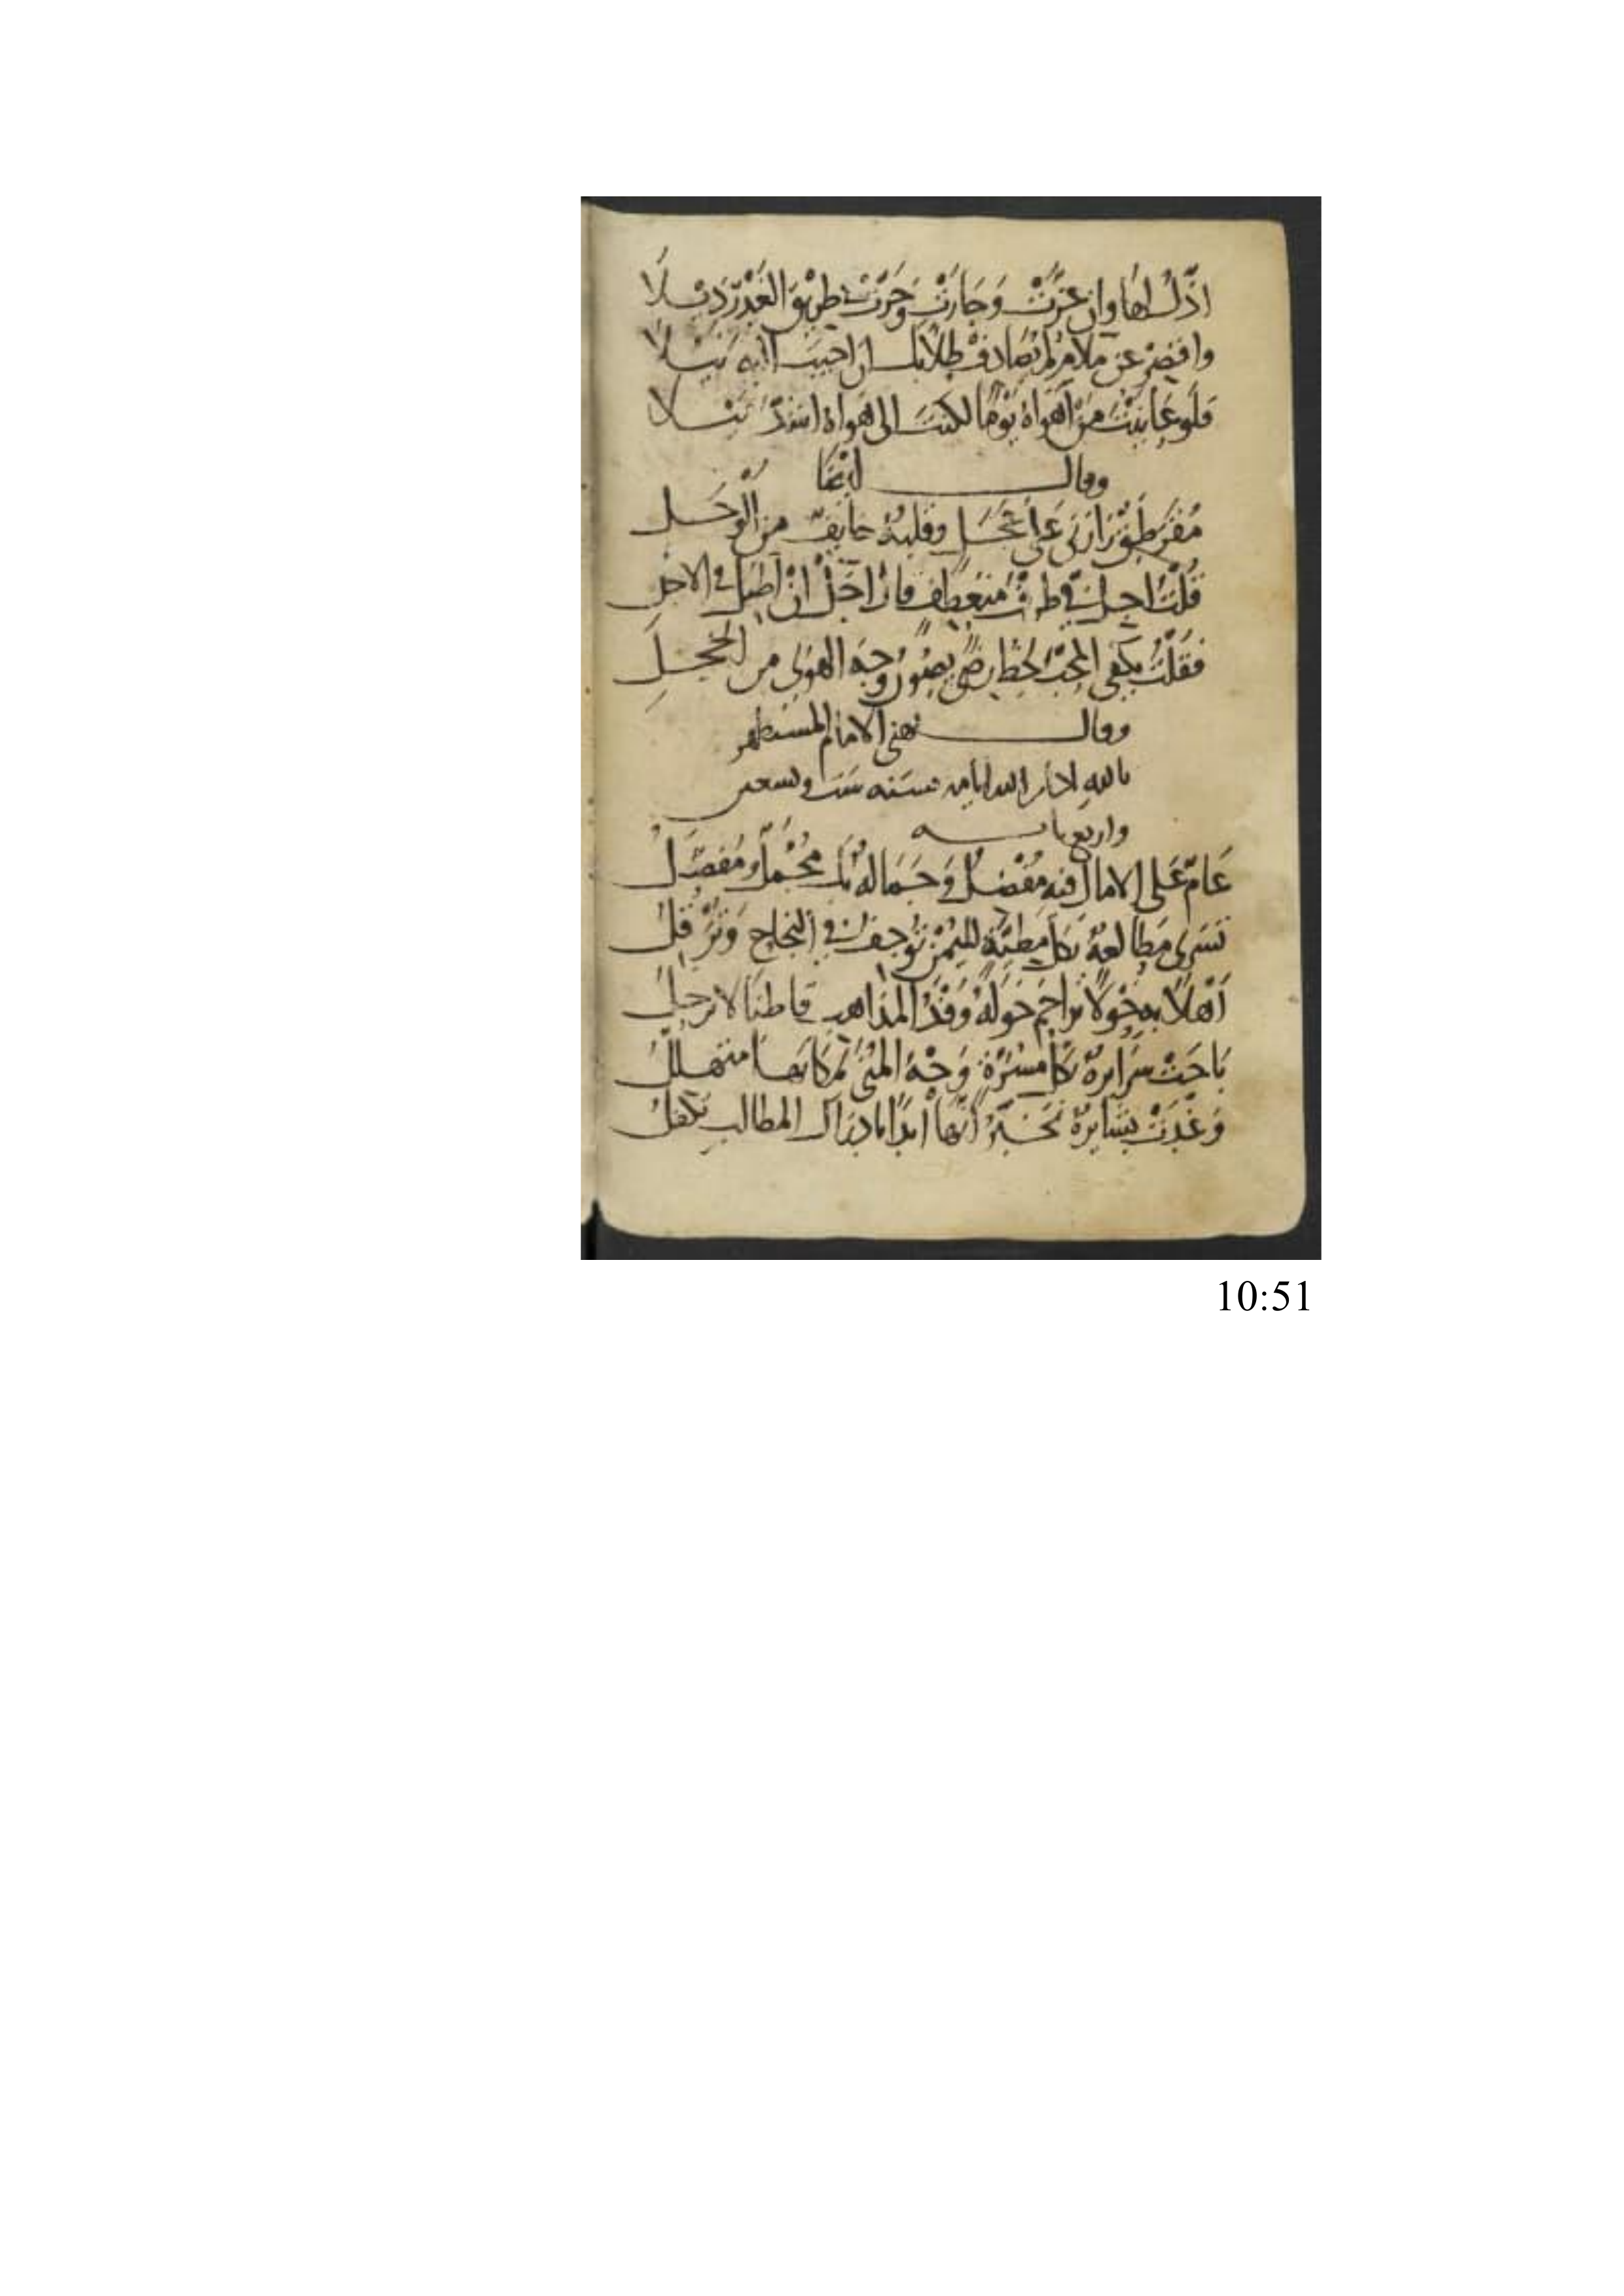 اذِلُّ لها وان عَزَّتْ وَجَارَتْ وَجَرَّتْ في طريق الغَدْرِ ذَيْلَا
واقصِرْ عن ملامٍ لم يُصادف طِلابك ان احيب اليه
فَلَو عَايَنْتَ مَنْ أَهْوَاهُ يَوْمًا لكنتَ الى هَوَاهُ اشدَّ مَيْلا
وقال ايضًا
مُقَرطَقٌ زَارَنِي عَلى عَجَلِ وقلبُهُ خايفٌ من الوَجَلِ
قُلتُ اجِلْ في طرفَ مُنعطفٍ قال أجَلْ ان اطيل في الاجل
فقلتُ يكفي المحبَّ لحظ رضًى يصُون وجه الهوى من الخجلِ
وقال يهني الامام المستظهر
بالله ادام الله ايامه سنه ست وتسعين
واربع مايه
عَامٌ عَلى الامال فيه مُفْضلُ وَجَمَاله بك مُجْمَلٌ ومُفصَّلُ
تسرى مَطالعهُ بكل مطيّة لليُمْنِ توجف في النجاح وَتُرْقِلُ
أَهْلًا به حَوْلًا تزاحم حَولَهُ وَفْدُ المذاهب قاطنًا لا يرحلُ
بَاحَتْ سَرَايرهُ بكل مسرّة وَجْهُ المُنى لمكانها متهللُ
وَغَدَتْ بشايرهُ تخبّرُ أنّها أبدًا بادراك المطالب تكفلُ
10:51